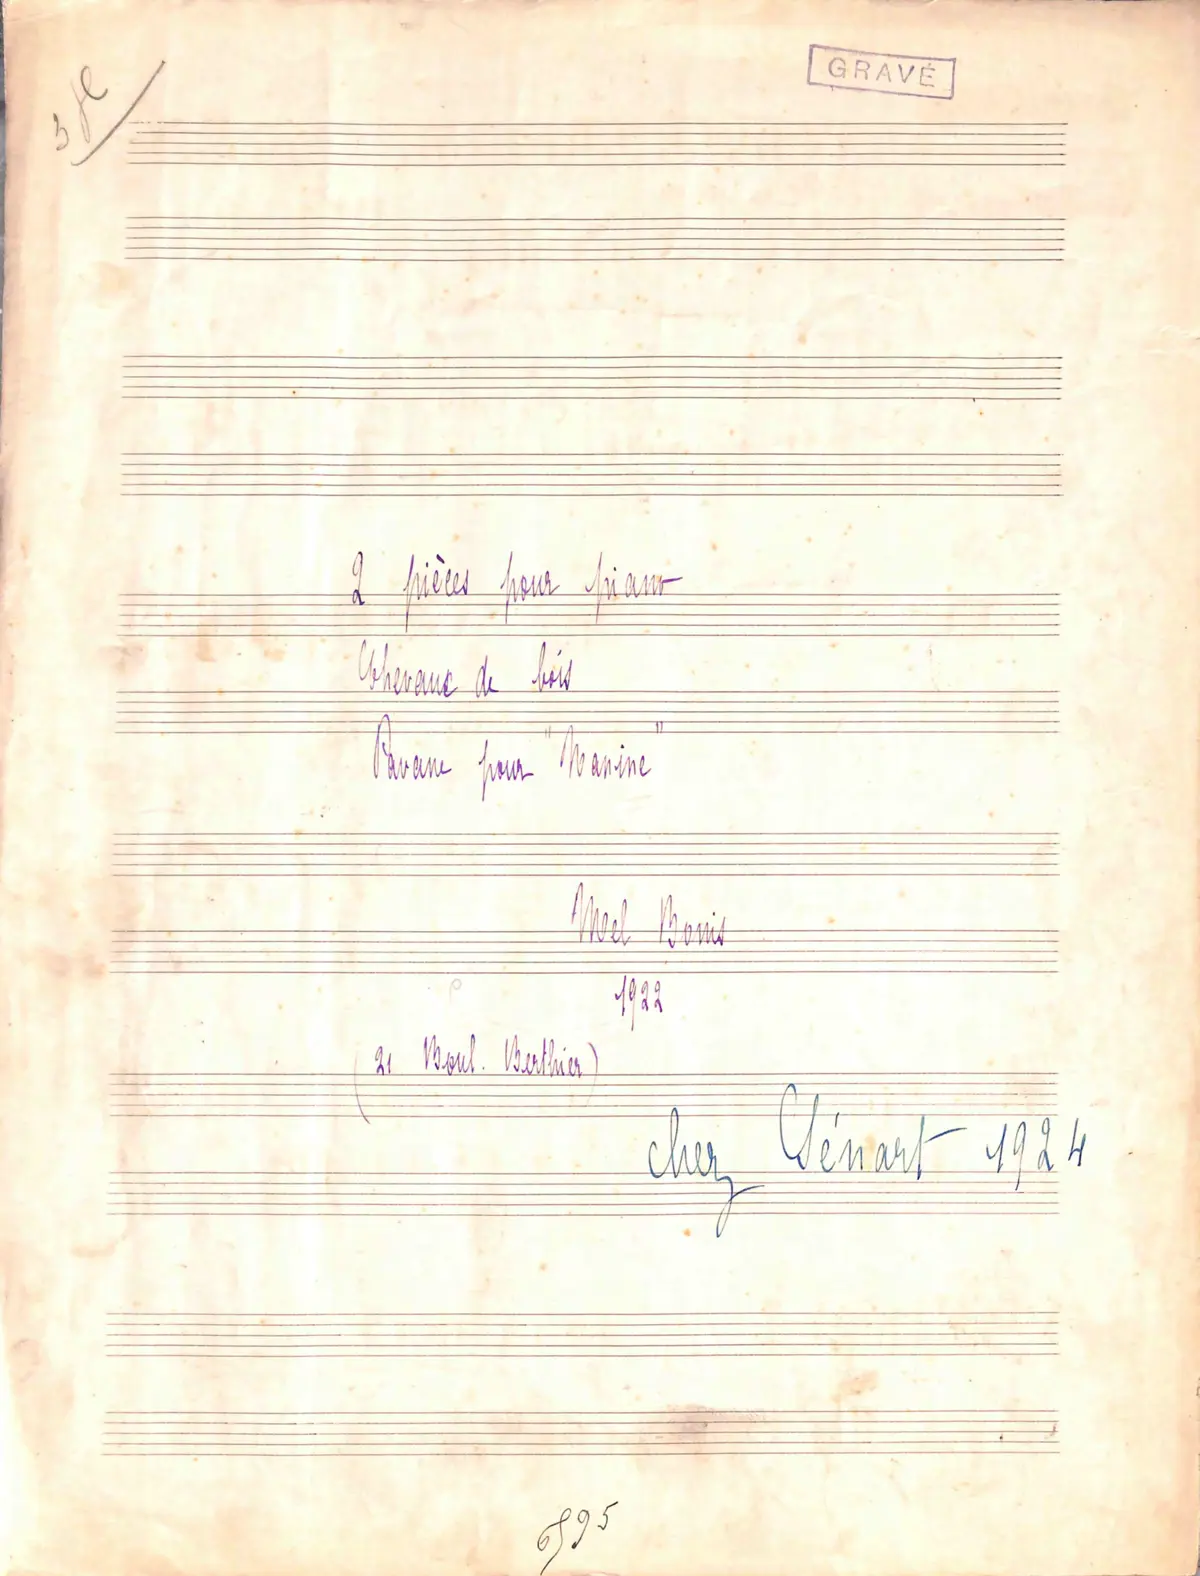 GRAVÉ
2 pièces pour piano
Chevaux de bois
Pavane pour "Nanine"
Mel Bonis
1922
(21 Boul. Berthier)
chez Sénart 1924